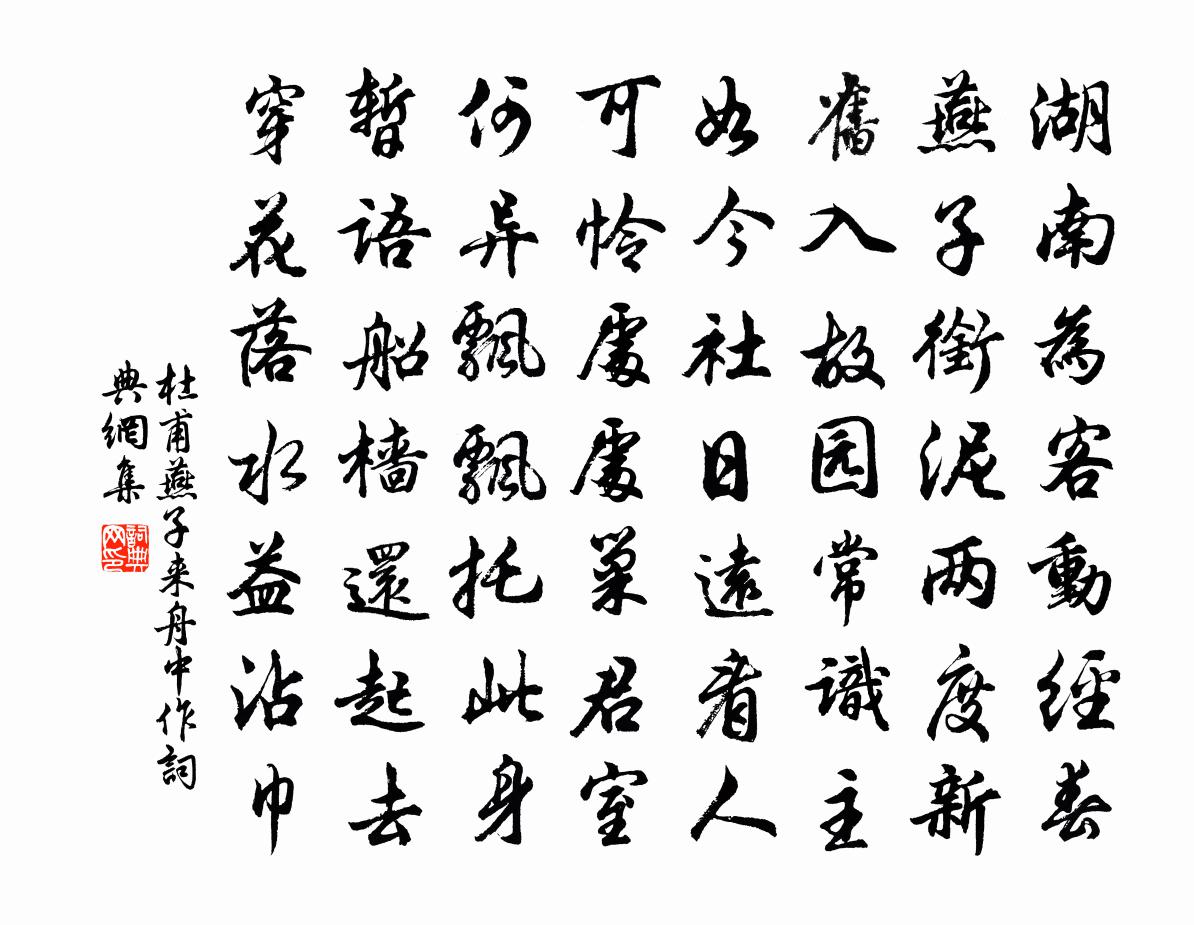 湖南為客動經春
燕子銜泥两度新
舊入故园常識主
如今社日遠看人
可怜處處巢君室
何异飄飄托此身
暫語船檣還起去
穿花落水益沾巾
杜甫燕子来舟中作詞
典網集
詞典
网印